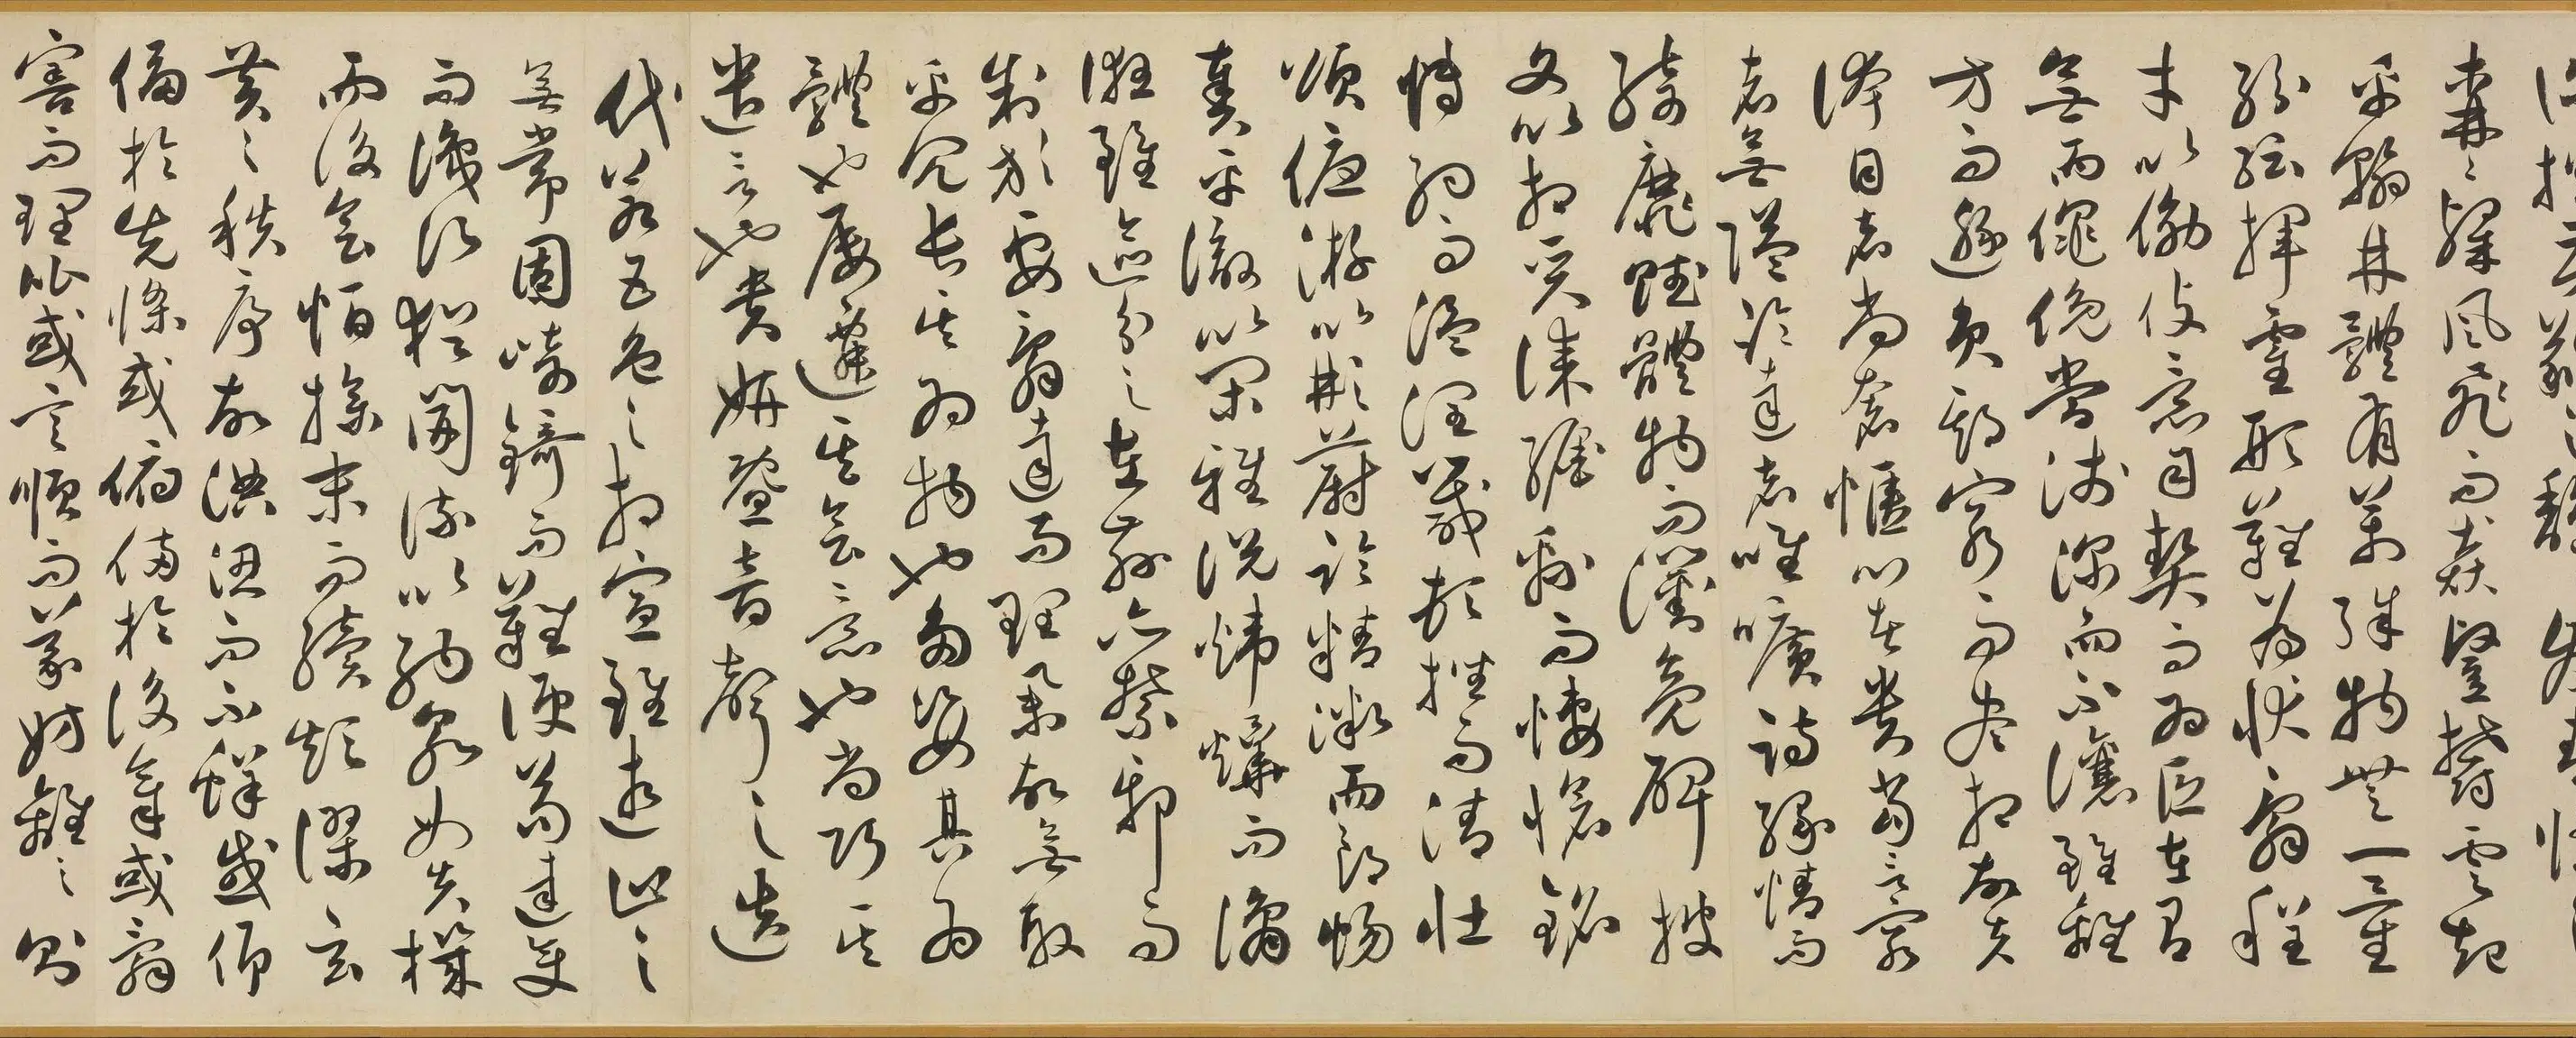 森々粲風飛而猋豎鬱雲起
乎翰林體有萬殊物無一量
紛紜揮霍形難為狀辭程
才以效伎意司契而為匠在有
無而僶俛當淺深而不讓雖離
方而遯員期窮形而盡相故夫
誇目者尚奢愜心者貴當言窮
者無隘論達者唯曠詩緣情而
綺靡賦體物而瀏亮碑披
文以相質誄纏綿而悽愴銘
博約而溫潤箴頓挫而清壯
頌優游以彬蔚論精微而朗暢
奏平徹以閑雅說煒曄而譎
誑雖區分之在茲亦禁邪而
制放要辭達而理舉故無取
乎冗長其為物也多姿其為
體也屢遷其會意也尚巧其
遣言也貴妍暨音聲之迭
代若五色之相宣雖逝止之
無常固崎錡而難便苟達變
而識次猶開流以納泉如失機
而後會恒操末而續顛謬玄
黃之秩序故淟涊而不鮮或仰
偪於先條或俯侵於後章或辭
害而理比或言順而義妨離之則